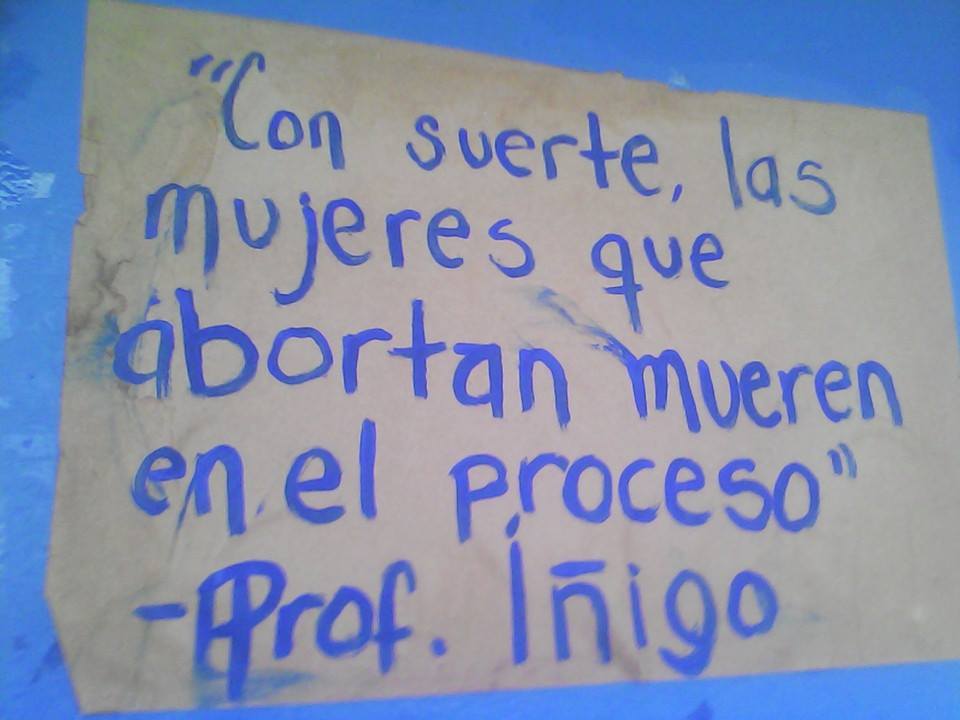 "Con suerte, las
mujeres que
abortan mueren
en el proceso"
-Prof. Iñigo